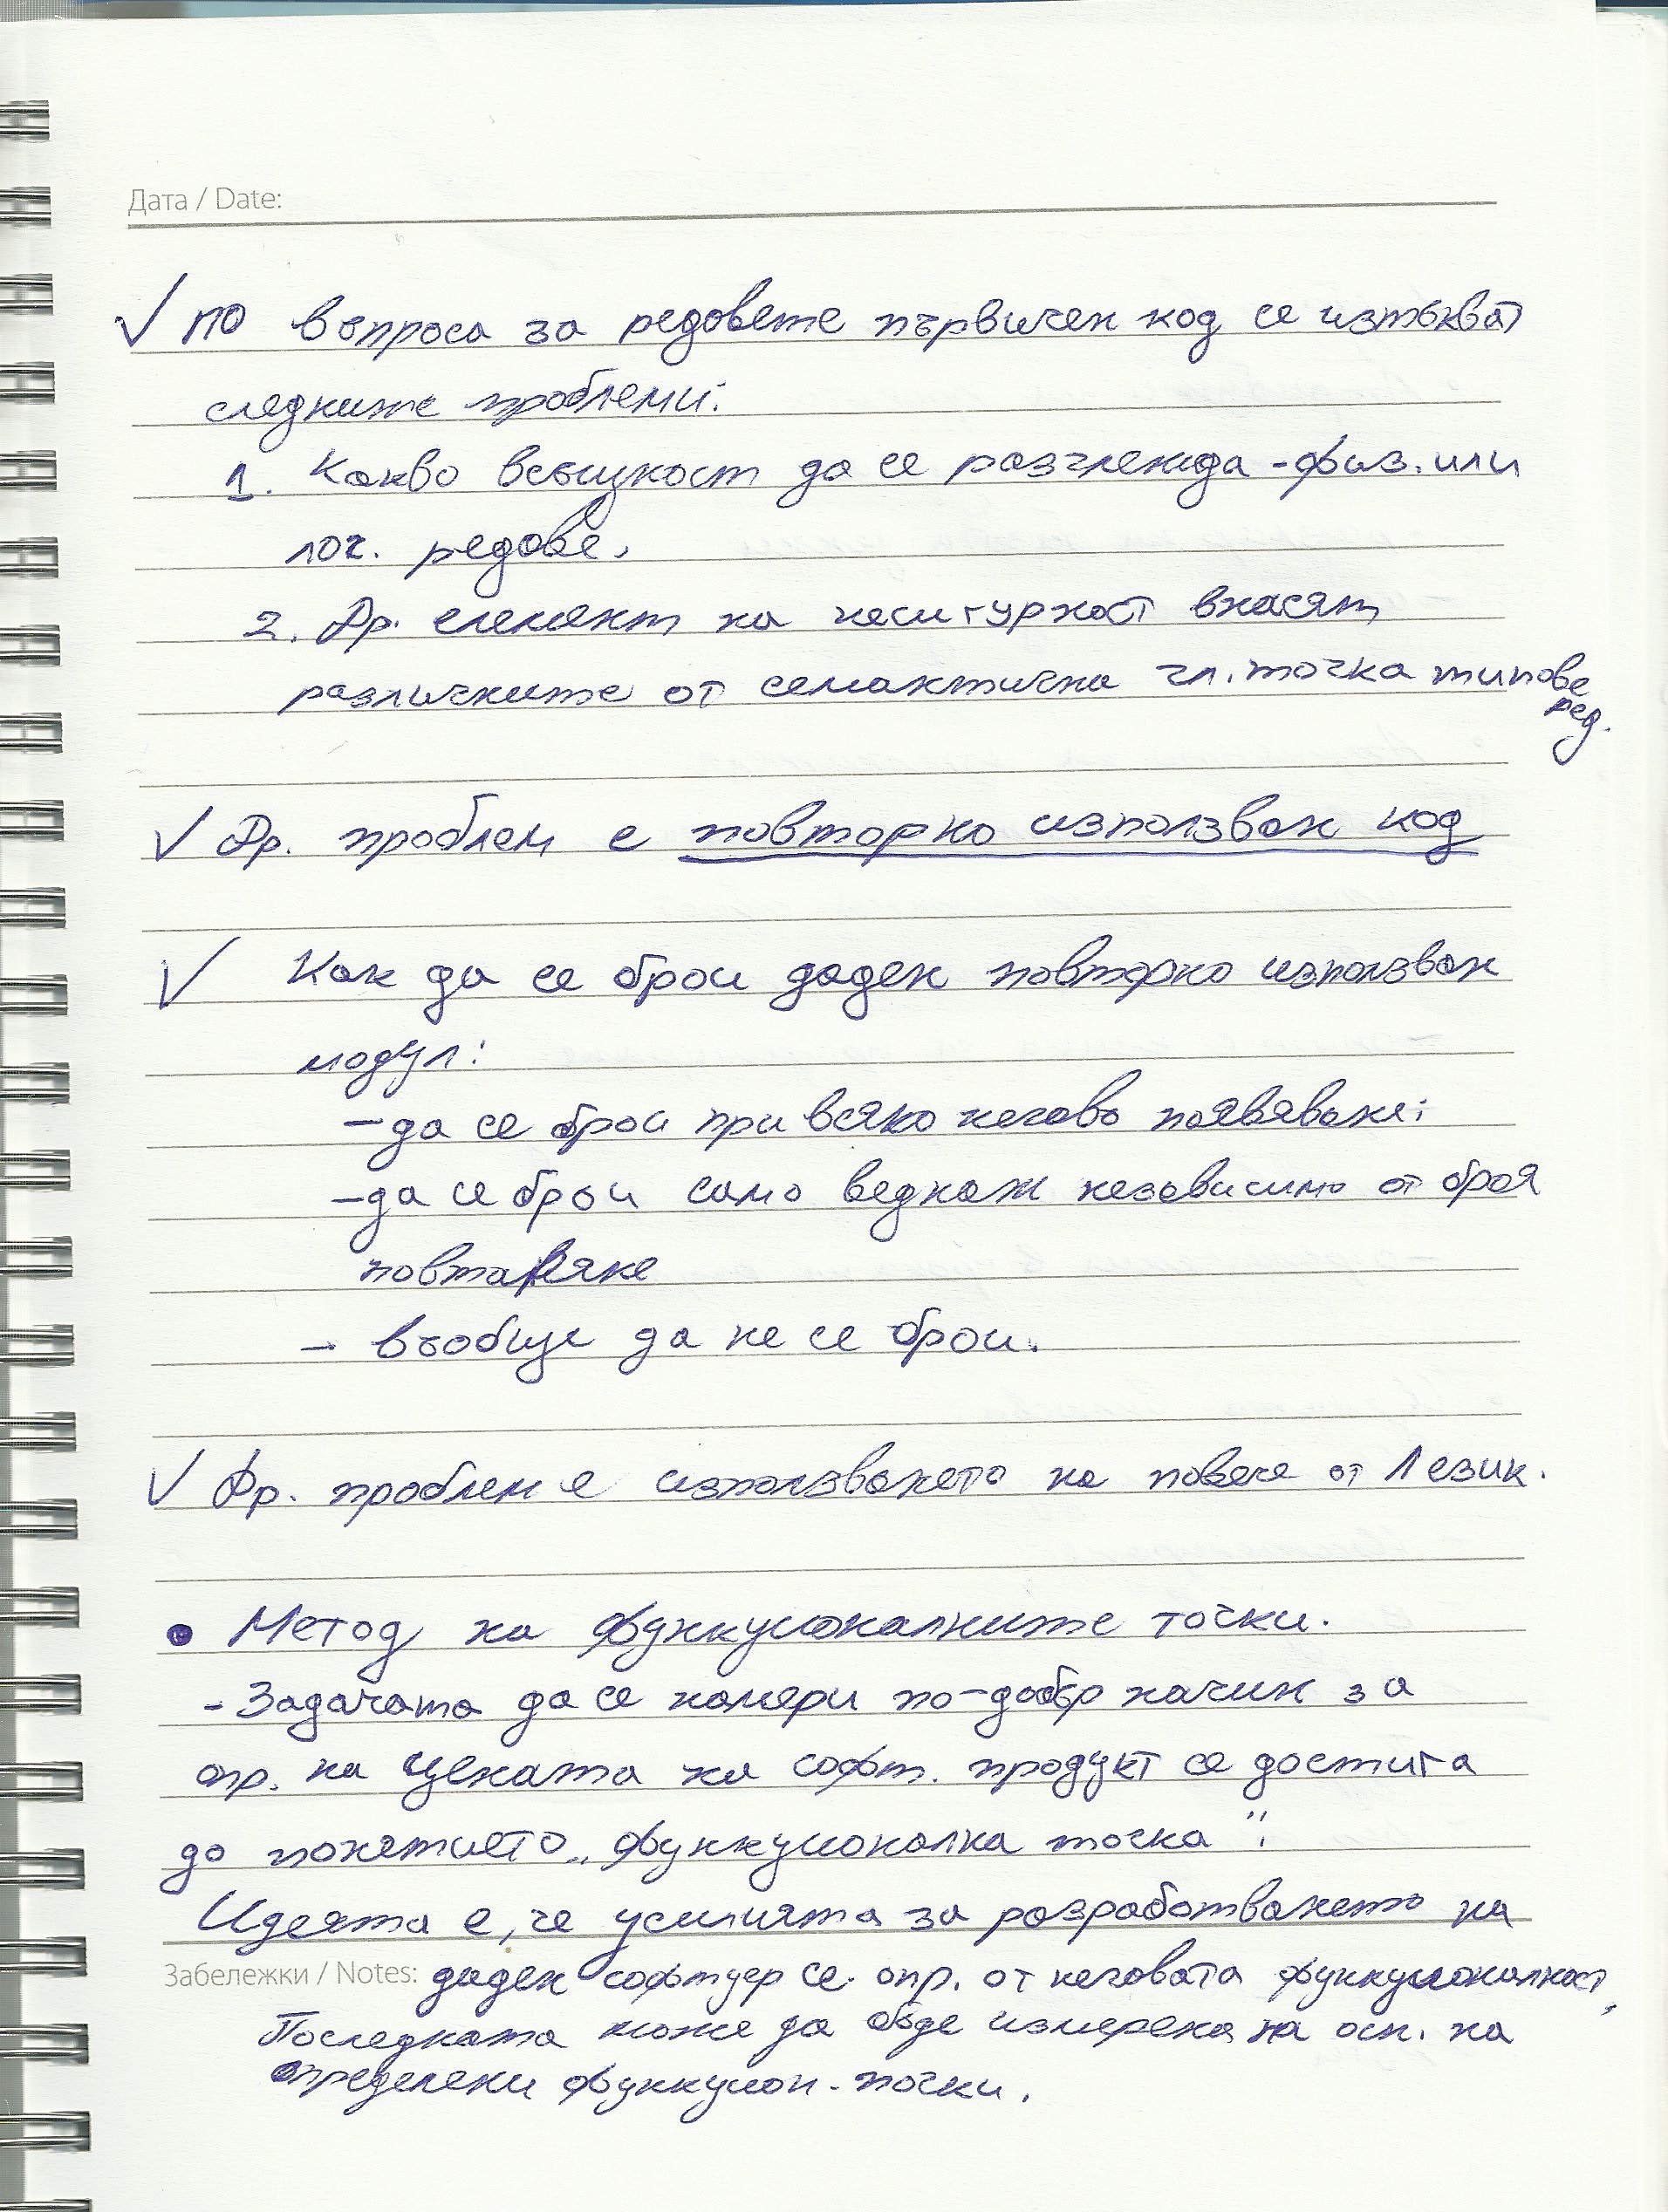 Дата / Date:
✓ ПО въпроса за редовете първичен код се изтъкват
следните проблеми:
1. Какво всъщност да се разглежда - физ. или
лог. редове.
2. Др. елемент на несигурност внасят
различните от семантична гл. точка типове
ред.
✓ Др. проблем е повторно използван код
✓ Как да се брои даден повторно използван
модул:
- да се брои при всяко негово появяване;
- да се брои само веднъж независимо от броя
повтаряне
- въобще да не се брои.
✓ Др. проблем е използването на повече от 1 език.
• Метод на функционалните точки.
- Задачата да се намери по-добър начин за
опр. на цената на софт. продукт се достига
до понятието „функционална точка".
Идеята е, че усилията за разработването на
Забележки / Notes: даден софтуер се опр. от неговата функционалност,
Последната може да бъде измерена на осн. на
определени функцион. точки.